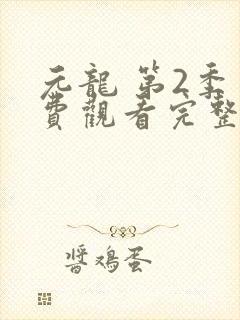 元龍 第2季
費觀看完整
醬鸡蛋